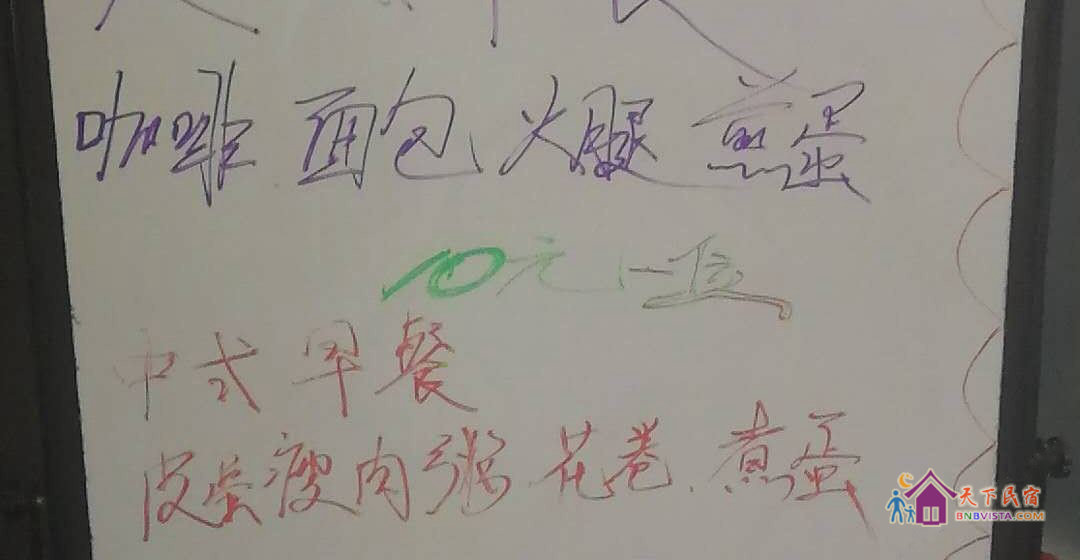 咖啡 面包 火腿 煎蛋
10元/一位
中式早餐
皮蛋瘦肉粥.花卷.煮蛋
天下民宿
BNBVISTA.COM